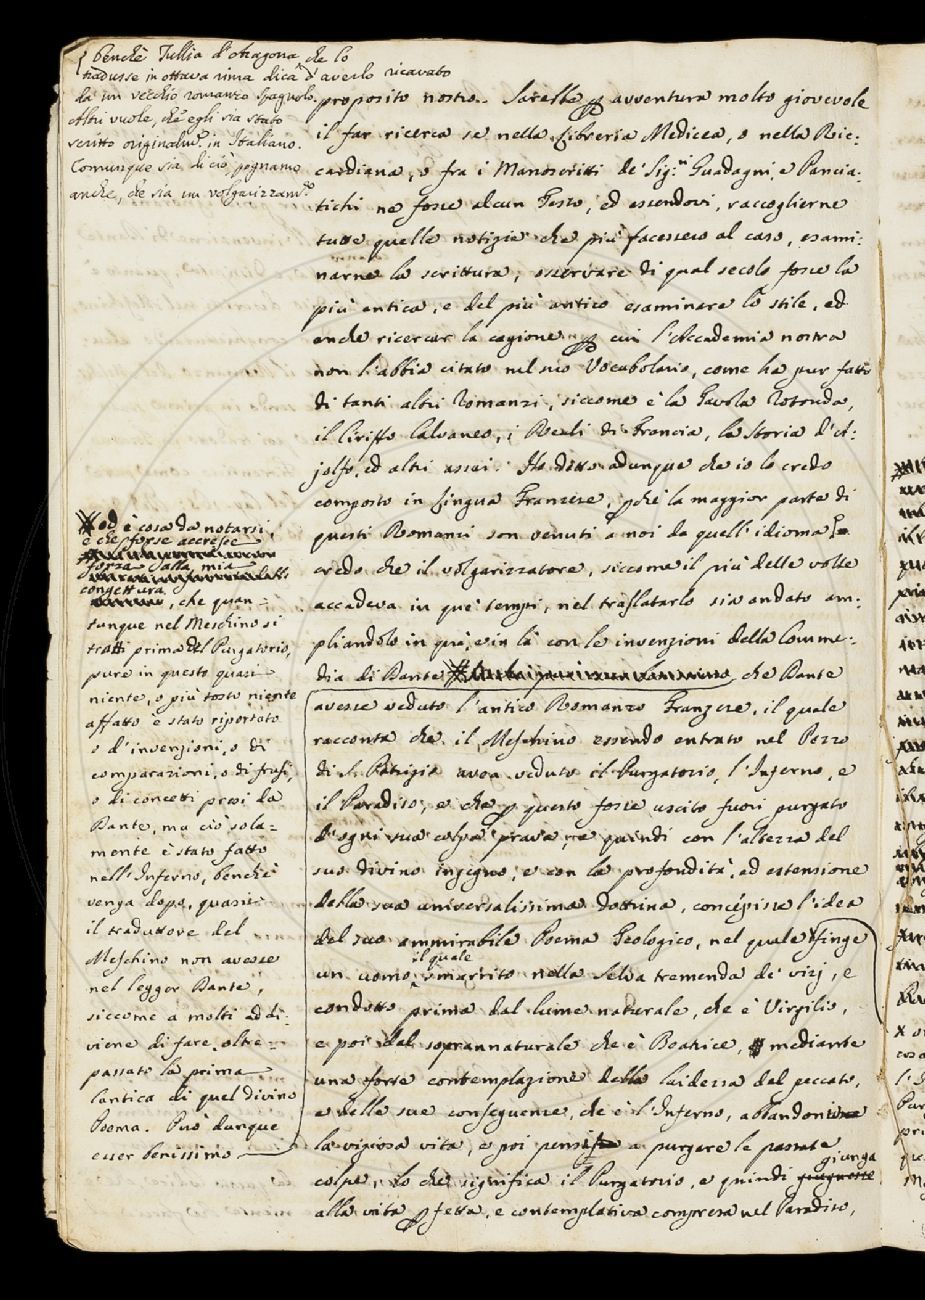 Benchè Tullia d'Aragona che lo
tradusse in ottava rima dica d'averlo ricavato
da un vecchio romanzo Spagnolo.
Altri vuole, che egli sia stato
scritto originalm.e in Italiano.
Comunque sia di ciò, pognamo
anche, che sia un volgarizzam.to
proposito nostro. Sarebbe p avventura molto giovevole
il far ricerca se nella Libreria Medicea, o nella Ric-
cardiana, o fra i Manoscritti de' Sig.ri Guadagni, e Pancia-
tichi ne fosse alcun Testo, ed essendovi, raccoglierne
tutte quelle notizie che più facessero al caso, esami-
narne la scrittura, osservare di qual secolo fosse la
più antica, e del più antico esaminare lo stile, ed
anche ricercar la cagione p cui l'Accademia nostra
non l'abbia citato nel suo Vocabolario, come ha pur fatto
di tanti altri Romanzi, siccome è la Tavola Rotonda,
il Ciriffo Calvaneo, i Reali di Francia, la Storia d'A-
jolfo, ed altri assai. Ho detto adunque che io lo credo
composto in Lingua Franzese, pchè la maggior parte di
questi Romanzi son venuti a noi da quell'idioma
credo che il volgarizzatore, siccome il più delle volte
accadeva in que' tempi, nel traslatarlo sia andato am-
pliandolo in quà, e in là con le invenzioni della Comme-
dia di Dante
ed è cosa da notarsi,
e che forse accresce
forza alla mia
congettura, che quan-
tunque nel Meschino si
tratti prima del Purgatorio,
pure in questo quasi
niente, o più tosto niente
affatto è stato riportato
o d'invenzioni, o di
comparazioni, o di frasi,
o di concetti presi da
Dante, ma ciò sola-
mente è stato fatto
nell'Inferno, benchè
venga dopo, quasi
il traduttore del
Meschino non avesse
nel legger Dante,
siccome a molti addi-
viene di fare, oltre-
passato la prima
Cantica di quel divino
Poema. Può dunque
esser benissimo
che Dante
avesse veduto l'antico Romanzo Franzese, il quale
racconta che il Meschino essendo entrato nel Pozzo
di S. Patrizio avea veduto il Purgatorio, l'Inferno, e
il Paradiso, e che p questo fosse uscito fuori purgato
d'ogni sua colpa prava, e quindi con l'altezza del
suo divino ingegno, e con la profondità, ed estensione
della sua universalissima dottrina, concepisse l'idea
del suo ammirabile Poema Teologico, nel quale finge
un uomo il quale smarrito nella selva tremenda de' vizj, e
condotto prima dal lume naturale, che è Virgilio,
e poi dal soprannaturale che è Beatrice, mediante
una forte contemplazione della laidezza del peccato,
e delle sue conseguenze, che è l'Inferno, abbandoni
la viziosa vita, e poi pensi a purgare le passate
colpe, lo che significa il Purgatorio, e quindi giunga
alla vita pfetta, e contemplativa compresa nel Paradiso,